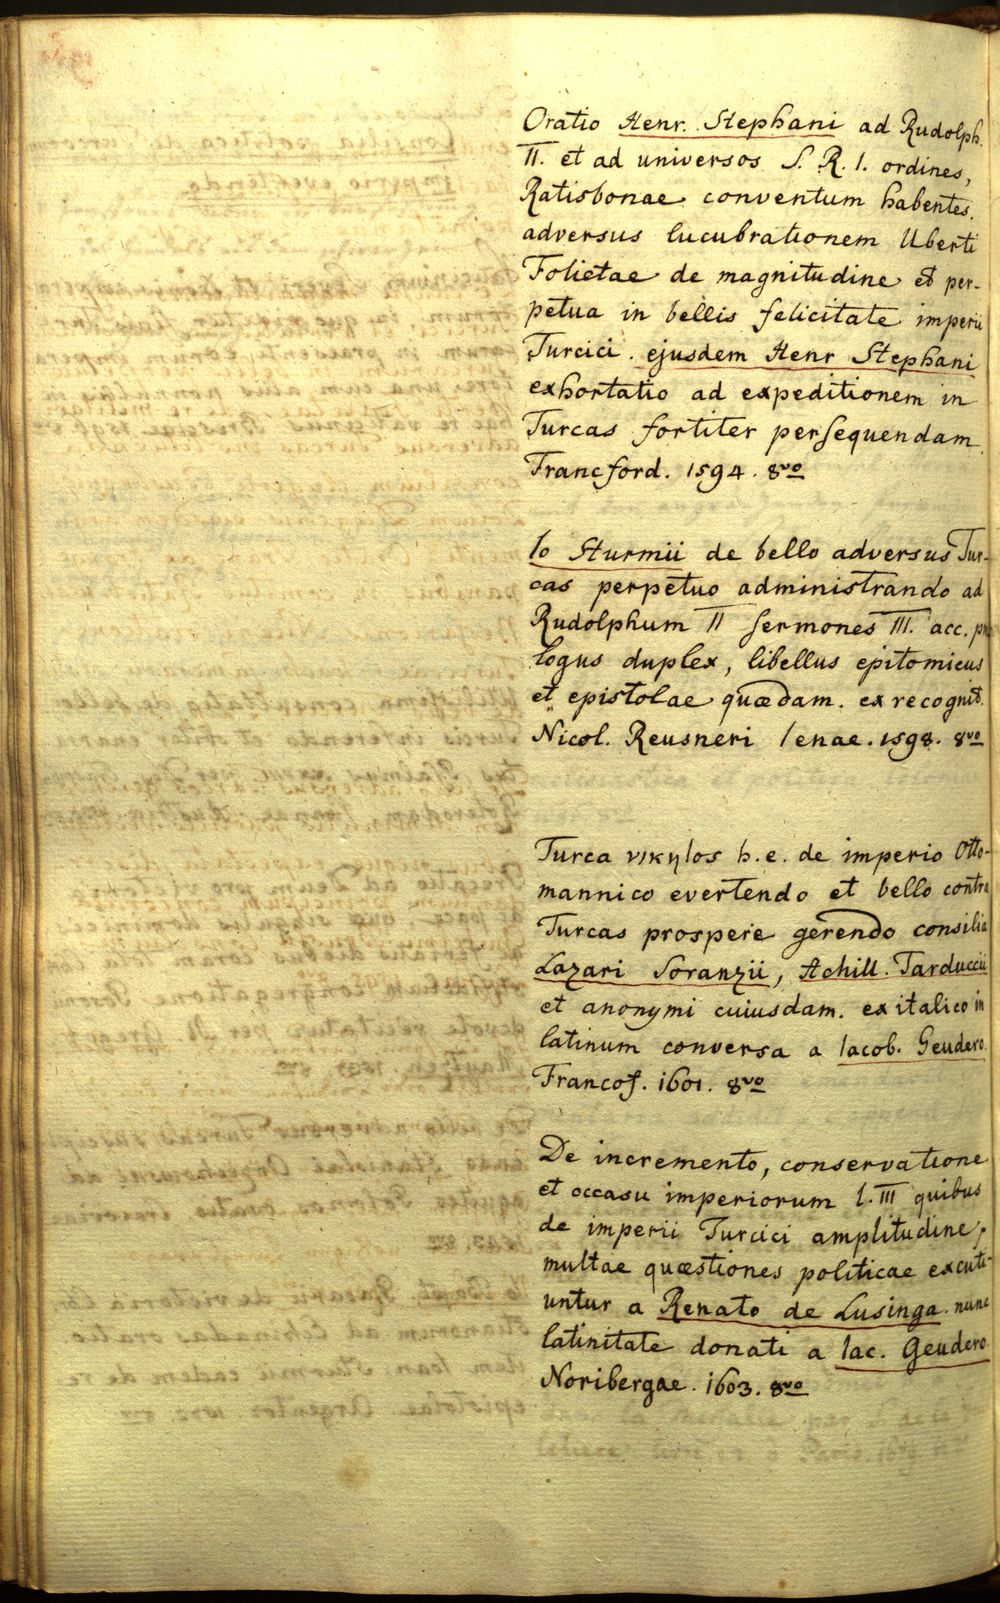 Oratio Henr. Stephani ad Rudolph.
II. et ad universos S. R. I. ordines,
Ratisbonae conventum habentes.
adversus lucubrationem Uberti
Folietae de magnitudine et per-
petua in bellis felicitate imperii
Turcici. ejusdem Henr Stephani
exhortatio ad expeditionem in
Turcas fortiter persequendam
Francford. 1594. 8vo
Io Sturmii de bello adversus Tur-
cas perpetuo administrando ad
Rudolphum II sermones III. acc. pro
logus duplex, libellus epitomicus
et epistolae quædam. ex recognit.
Nicol. Reusneri Ienae. 1598. 8vo
Turca νικηlos h.e. de imperio Otto-
mannico evertendo et bello contra
Turcas prospere gerendo consilia
Lazari Soranzii, Achill. Tarduccii
et anonymi cuiusdam. ex italico in
latinum conversa a Iacob. Geudero.
Francof. 1601. 8vo
De incremento, conservatione
et occasu imperiorum l. III quibus
de imperii Turcici amplitudine,
multae quæstiones politicae excuti-
untur a Renato de Lusinga. nunc
latinitate donati a Iac. Geudero.
Noribergae. 1603. 8vo